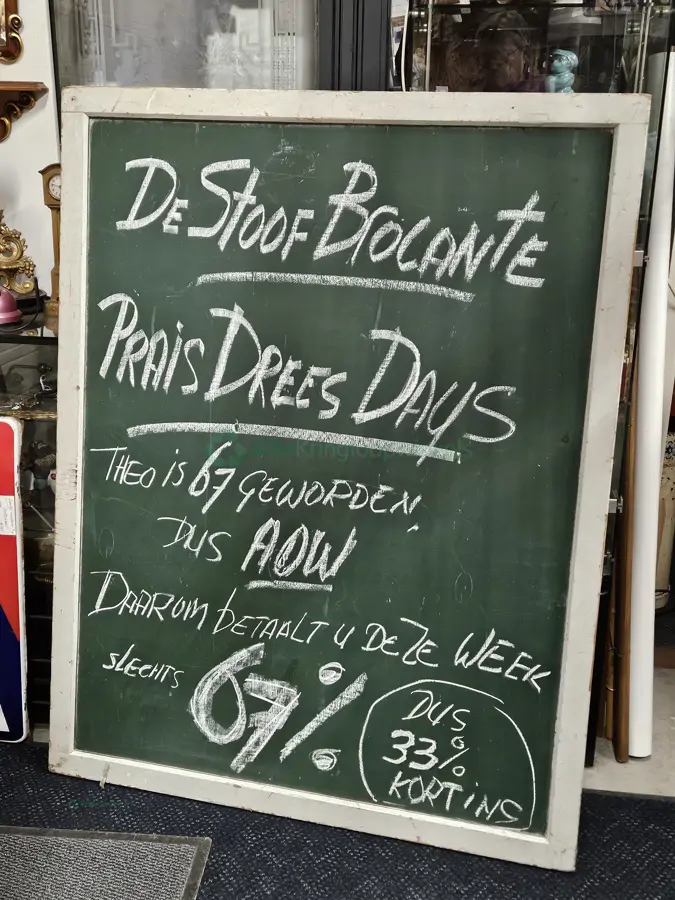 De Stoof Brocante
Prais Drees Days
Theo is 67 geworden,
dus AOW
Daarom betaalt u deze week
slechts 67%
dus
33%
korting